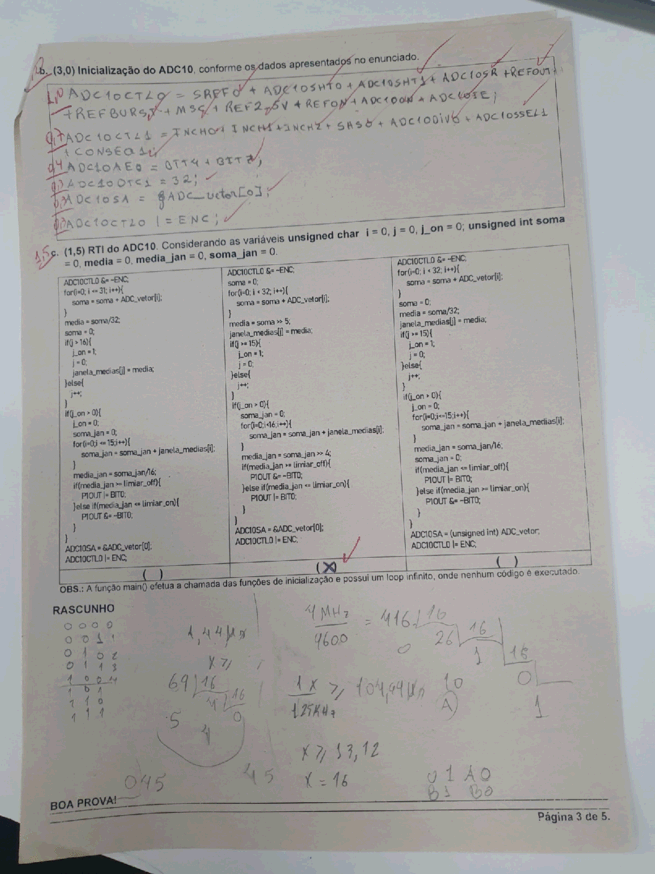 b. (3,0) Inicialização do ADC10, conforme os dados apresentados no enunciado.
1,0 ADC10CTL0 = SREF0 + ADC10SHT0 + ADC10SHT1 + ADC10SR + REFOUT
+ REFBURST + MSC + REF2_5V + REFON + ADC10ON + ADC10IE;
ADC10CTL1 = INCH0 + INCH1 + INCH2 + SHS0 + ADC10DIV0 + ADC10SSEL1
+ CONSEQ1;
ADC10AE0 = BIT4 + BIT7;
ADC10DTC1 = 32;
ADC10SA = &ADC_vetor[0];
ADC10CTL0 |= ENC;
1,5 c. (1,5) RTI do ADC10. Considerando as variáveis unsigned char i = 0, j = 0, j_on = 0; unsigned int soma
= 0, media = 0, media_jan = 0, soma_jan = 0.
ADC10CTL0 &= ~ENC;
for(i=0; i <= 31; i++){
soma = soma + ADC_vetor[i];
}
media = soma/32;
soma = 0;
if(j > 16){
j_on = 1;
j = 0;
janela_medias[j] = media;
}else{
j++;
}
if(j_on > 0){
j_on = 0;
soma_jan = 0;
for(i=0;i <= 15;i++){
soma_jan = soma_jan + janela_medias[i];
}
media_jan = soma_jan/16;
if(media_jan >= limiar_off){
P1OUT |= BIT0;
}else if(media_jan <= limiar_on){
P1OUT &= ~BIT0;
}
}
ADC10SA = &ADC_vetor[0];
ADC10CTL0 |= ENC;
( )
ADC10CTL0 &= ~ENC;
soma = 0;
for(i=0; i < 32; i++){
soma = soma + ADC_vetor[i];
}
media = soma >> 5;
janela_medias[j] = media;
if(j >= 15){
j_on = 1;
j = 0;
}else{
j++;
}
if(j_on > 0){
soma_jan = 0;
for(i=0;i<16;i++){
soma_jan = soma_jan + janela_medias[i];
}
media_jan = soma_jan >> 4;
if(media_jan >= limiar_off){
P1OUT &= ~BIT0;
}else if(media_jan <= limiar_on){
P1OUT |= BIT0;
}
}
ADC10SA = &ADC_vetor[0];
ADC10CTL0 |= ENC;
(X)
ADC10CTL0 &= ~ENC;
for(i=0; i < 32; i++){
soma = soma + ADC_vetor[i];
}
soma = 0;
media = soma/32;
janela_medias[j] = media;
if(j >= 15){
j_on = 1;
j = 0;
}else{
j++;
}
if(j_on > 0){
j_on = 0;
for(i=0;i<=15;i++){
soma_jan = soma_jan + janela_medias[i];
}
media_jan = soma_jan/16;
soma_jan = 0;
if(media_jan <= limiar_off){
P1OUT |= BIT0;
}else if(media_jan >= limiar_on){
P1OUT &= ~BIT0;
}
}
ADC10SA = (unsigned int) ADC_vetor;
ADC10CTL0 |= ENC;
( )
OBS.: A função main() efetua a chamada das funções de inicialização e possui um loop infinito, onde nenhum código é executado.
RASCUNHO
0 0 0 0
0 0 1 1
0 1 0 2
0 1 1 3
1 0 0 4
1 0 1
1 1 0
1 1 1
1,44 μs
X ≥
69 16
4 16
5 0
4
045
45
4 MHz = 416 16
4600
26 16
0 1 16
0
1
1 X ≥ 104,94 μs
125KHz
10
A
X ≥ 13,12
X = 16
0 1 A0
B1 B0
BOA PROVA!
Página 3 de 5.